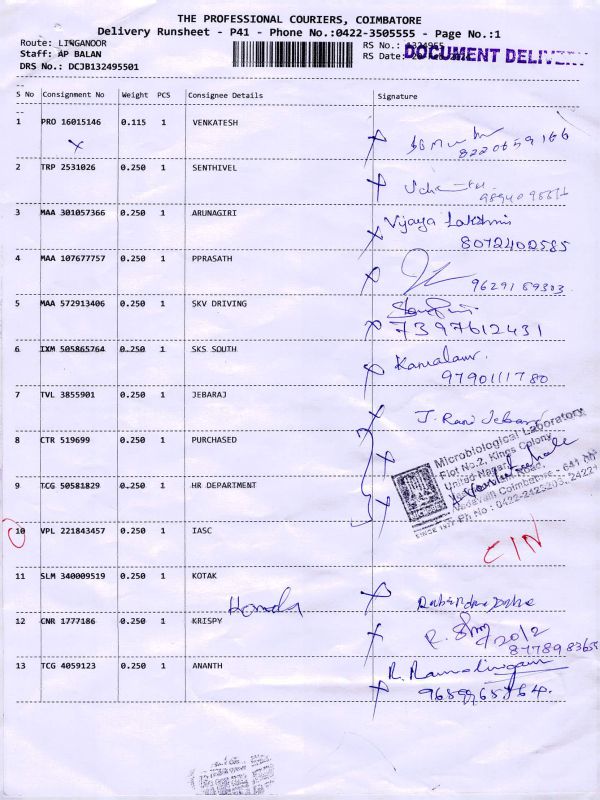 THE PROFESSIONAL COURIERS, COIMBATORE
Delivery Runsheet - P41 - Phone No.:0422-3505555 - Page No.:1
Route: LINGANOOR
Staff: AP BALAN
DRS No.: DCJB132495501
RS No.: 1324955
RS Date:
DOCUMENT DELIVERY
S No Consignment No Weight PCS Consignee Details Signature
1 PRO 16015146 0.115 1 VENKATESH
8220659166
2 TRP 2531026 0.250 1 SENTHIVEL
3 MAA 301057366 0.250 1 ARUNAGIRI Vijaya Lakshmi
8072402585
4 MAA 107677757 0.250 1 PPRASATH
9629169303
5 MAA 572913406 0.250 1 SKV DRIVING
7397612431
6 IXM 505865764 0.250 1 SKS SOUTH
9790111780
7 TVL 3855901 0.250 1 JEBARAJ J. Rani
8 CTR 519699 0.250 1 PURCHASED
Microbiological Laboratory
Plot No.2, Kings Colony
United Nagar
9 TCG 50581829 0.250 1 HR DEPARTMENT
Vadavalli Coimbatore - 641
Ph No : 0422-2425203, 2422
SINCE 1977
10 VPL 221843457 0.250 1 IASC C/N
11 SLM 340009519 0.250 1 KOTAK
12 CNR 1777186 0.250 1 KRISPY
13 TCG 4059123 0.250 1 ANANTH R. Ramalingam